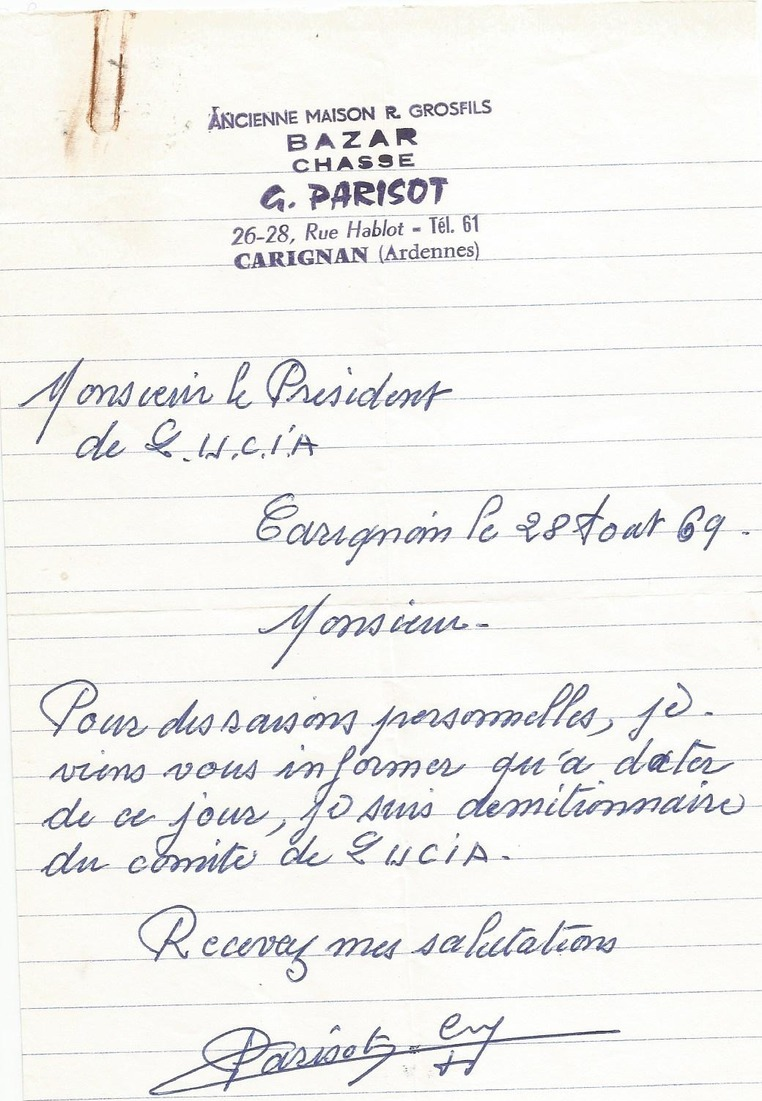 ANCIENNE MAISON R. GROSFILS
BAZAR
CHASSE
G. PARISOT
26-28, Rue Hablot - Tél. 61
CARIGNAN (Ardennes)
Monsieur le Président
de L.U.C.I.A
Carignan le 28 Aout 69.
Monsieur-
Pour des raisons personnelles, je
viens vous informer qu'a dater
de ce jour, je suis demitionnaire
du comite de LUCIA.
Recevez mes salutations
Parisot